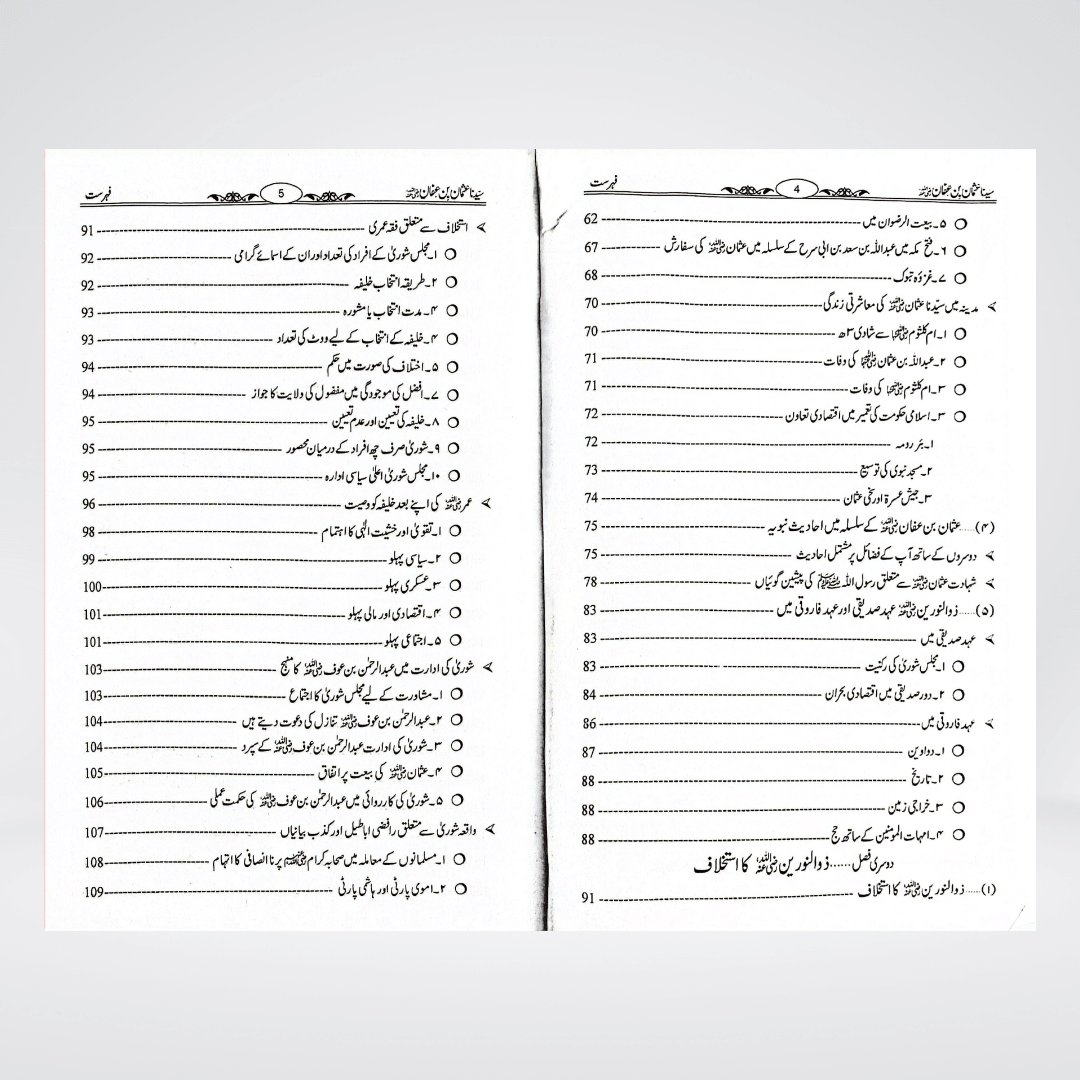 سیدنا عثمان بن عفان رضی اللہ عنہ 4 فہرست
۵۔ بیعت الرضوان میں 62
۶۔ فتح مکہ میں عبداللہ بن سعد بن ابی سرح کے سلسلہ میں عثمان رضی اللہ عنہ کی سفارش 67
۷۔ غزوہ تبوک 68
مدینہ میں سیّدنا عثمان رضی اللہ عنہ کی معاشرتی زندگی 70
۱۔ ام کلثوم رضی اللہ عنہا سے شادی ۳ھ 70
۲۔ عبداللہ بن عثمان رضی اللہ عنہما کی وفات 71
۳۔ ام کلثوم رضی اللہ عنہا کی وفات 71
۳۔ اسلامی حکومت کی تعمیر میں اقتصادی تعاون 72
۱۔ بئر رومہ 72
۲۔ مسجد نبوی کی توسیع 73
۳۔ جیش عسرۃ اور سخی عثمان 74
(۴)..... عثمان بن عفان رضی اللہ عنہ کے سلسلہ میں احادیث نبویہ 75
دوسروں کے ساتھ آپ کے فضائل پر مشتمل احادیث 75
شہادت عثمان رضی اللہ عنہ سے متعلق رسول اللہ ﷺ کی پیشین گوئیاں 78
(۵)..... ذوالنورین رضی اللہ عنہ عہد صدیقی اور عہد فاروقی میں 83
عہد صدیقی میں 83
۱۔ مجلس شوریٰ کی رکنیت 83
۲۔ دور صدیقی میں اقتصادی بحران 84
عہد فاروقی میں 86
۱۔ دواوین 87
۲۔ تاریخ 88
۳۔ خراجی زمین 88
۴۔ امہات المومنین کے ساتھ حج 88
دوسری فصل...... ذوالنورین رضی اللہ عنہ کا استخلاف
(۱)..... ذوالنورین رضی اللہ عنہ کا استخلاف 91
سیّدنا عثمان بن عفان رضی اللہ عنہ 5 فہرست
استخلاف سے متعلق فقہ عمری 91
۱۔ مجلس شوریٰ کے افراد کی تعداد اور ان کے اسمائے گرامی 92
۲۔ طریقہ انتخاب خلیفہ 92
۴۔ مدت انتخاب یا مشورہ 93
۴۔ خلیفہ کے انتخاب کے لیے ووٹ کی تعداد 93
۵۔ اختلاف کی صورت میں حکم 94
۷۔ افضل کی موجودگی میں مفضول کی ولایت کا جواز 94
۸۔ خلیفہ کی تعیین اور عدم تعیین 95
۹۔ شوریٰ صرف چھ افراد کے درمیان محصور 95
۱۰۔ مجلس شوریٰ اعلیٰ سیاسی ادارہ 95
عمر رضی اللہ عنہ کی اپنے بعد خلیفہ کو وصیت 96
۱۔ تقویٰ اور خشیت الٰہی کا اہتمام 98
۲۔ سیاسی پہلو 99
۳۔ عسکری پہلو 100
۴۔ اقتصادی اور مالی پہلو 101
۵۔ اجتماعی پہلو 101
شوریٰ کی ادارت میں عبدالرحمٰن بن عوف رضی اللہ عنہ کا منہج 103
۱۔ مشاورت کے لیے مجلس شوریٰ کا اجتماع 103
۲۔ عبدالرحمٰن بن عوف رضی اللہ عنہ تنازل کی دعوت دیتے ہیں 104
۳۔ شوریٰ کی ادارت عبدالرحمٰن بن عوف رضی اللہ عنہ کے سپرد 104
۴۔ عثمان رضی اللہ عنہ کی بیعت پر اتفاق 105
۵۔ شوریٰ کی کارروائی میں عبدالرحمٰن بن عوف رضی اللہ عنہ کی حکمت عملی 106
واقعہ شوریٰ سے متعلق رافضی اباطیل اور کذب بیانیاں 107
۱۔ مسلمانوں کے معاملہ میں صحابہ کرام رضی اللہ عنہم پر نا انصافی کا اتہام 108
۲۔ اموی پارٹی اور ہاشمی پارٹی 109